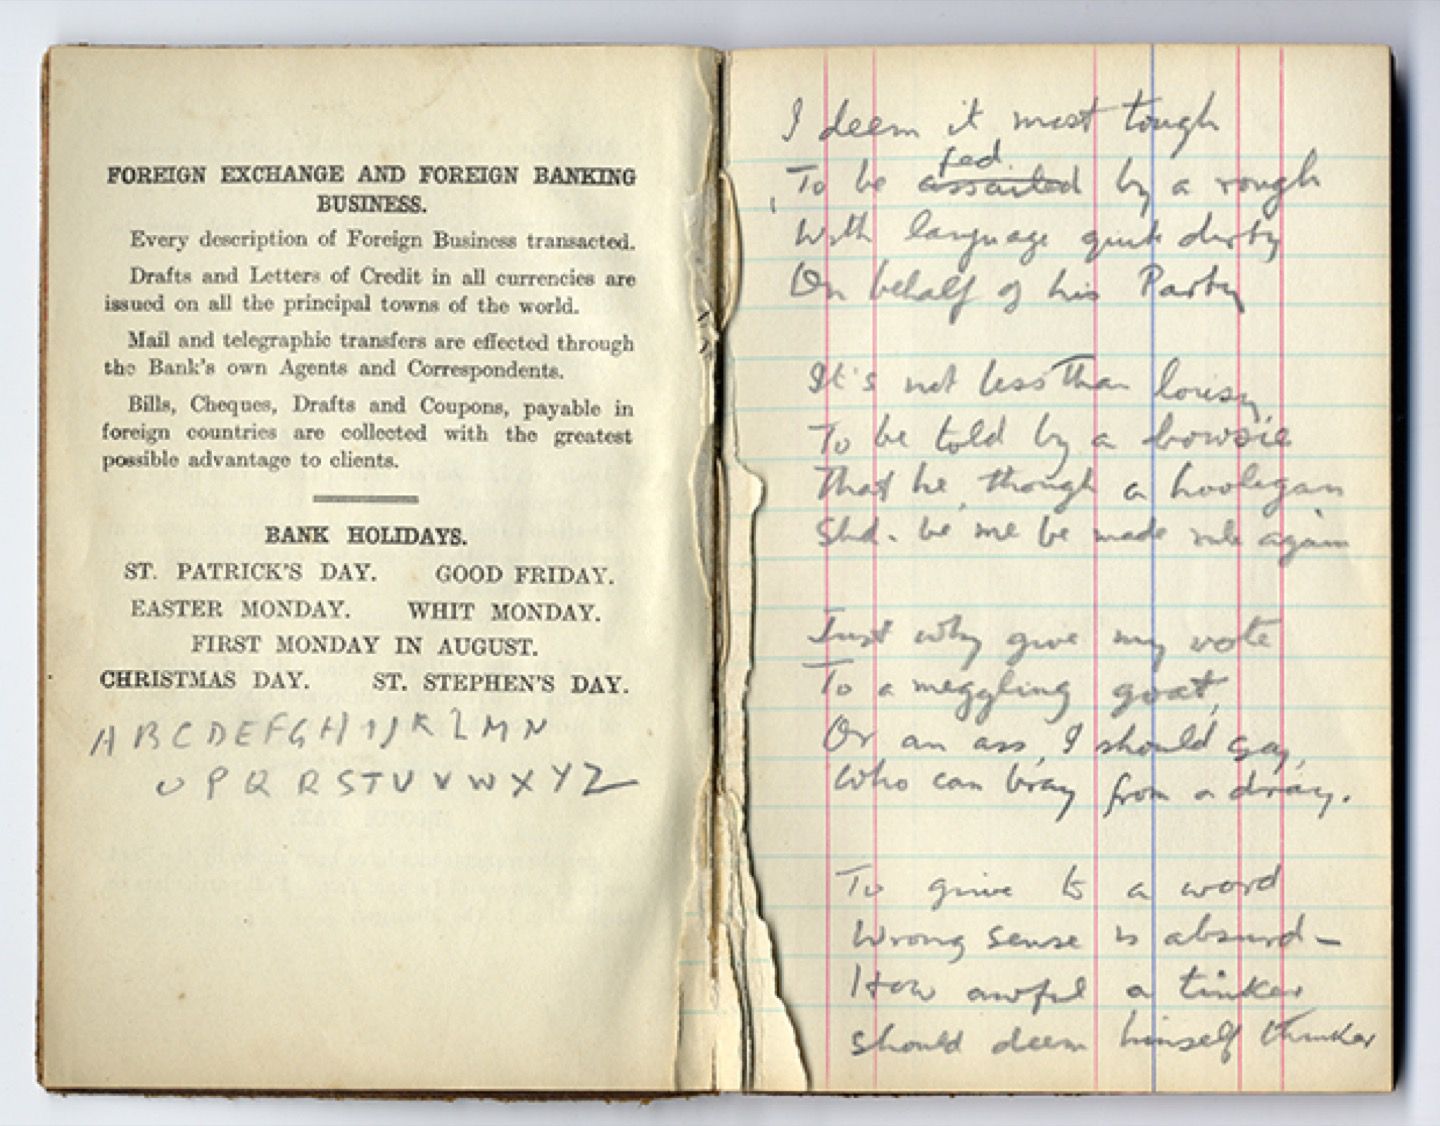 FOREIGN EXCHANGE AND FOREIGN BANKING
BUSINESS.
Every description of Foreign Business transacted.
Drafts and Letters of Credit in all currencies are
issued on all the principal towns of the world.
Mail and telegraphic transfers are effected through
the Bank's own Agents and Correspondents.
Bills, Cheques, Drafts and Coupons, payable in
foreign countries are collected with the greatest
possible advantage to clients.
BANK HOLIDAYS.
ST. PATRICK'S DAY. GOOD FRIDAY.
EASTER MONDAY. WHIT MONDAY.
FIRST MONDAY IN AUGUST.
CHRISTMAS DAY. ST. STEPHEN'S DAY.
A B C D E F G H I J K L M N
O P Q R S T U V W X Y Z
I deem it most tough
fed
To be assailed by a rough
With language quite dirty
On behalf of his Party
It's not less than lousy,
To be told by a bowsie
That he, though a hooligan
Shd. be me be made rule again
Just why give my vote
To a meggling goat,
Or an ass, I should say,
Who can bray from a dray.
To give to a word
Wrong sense is absurd –
How awful a tinker
Should deem himself thinker